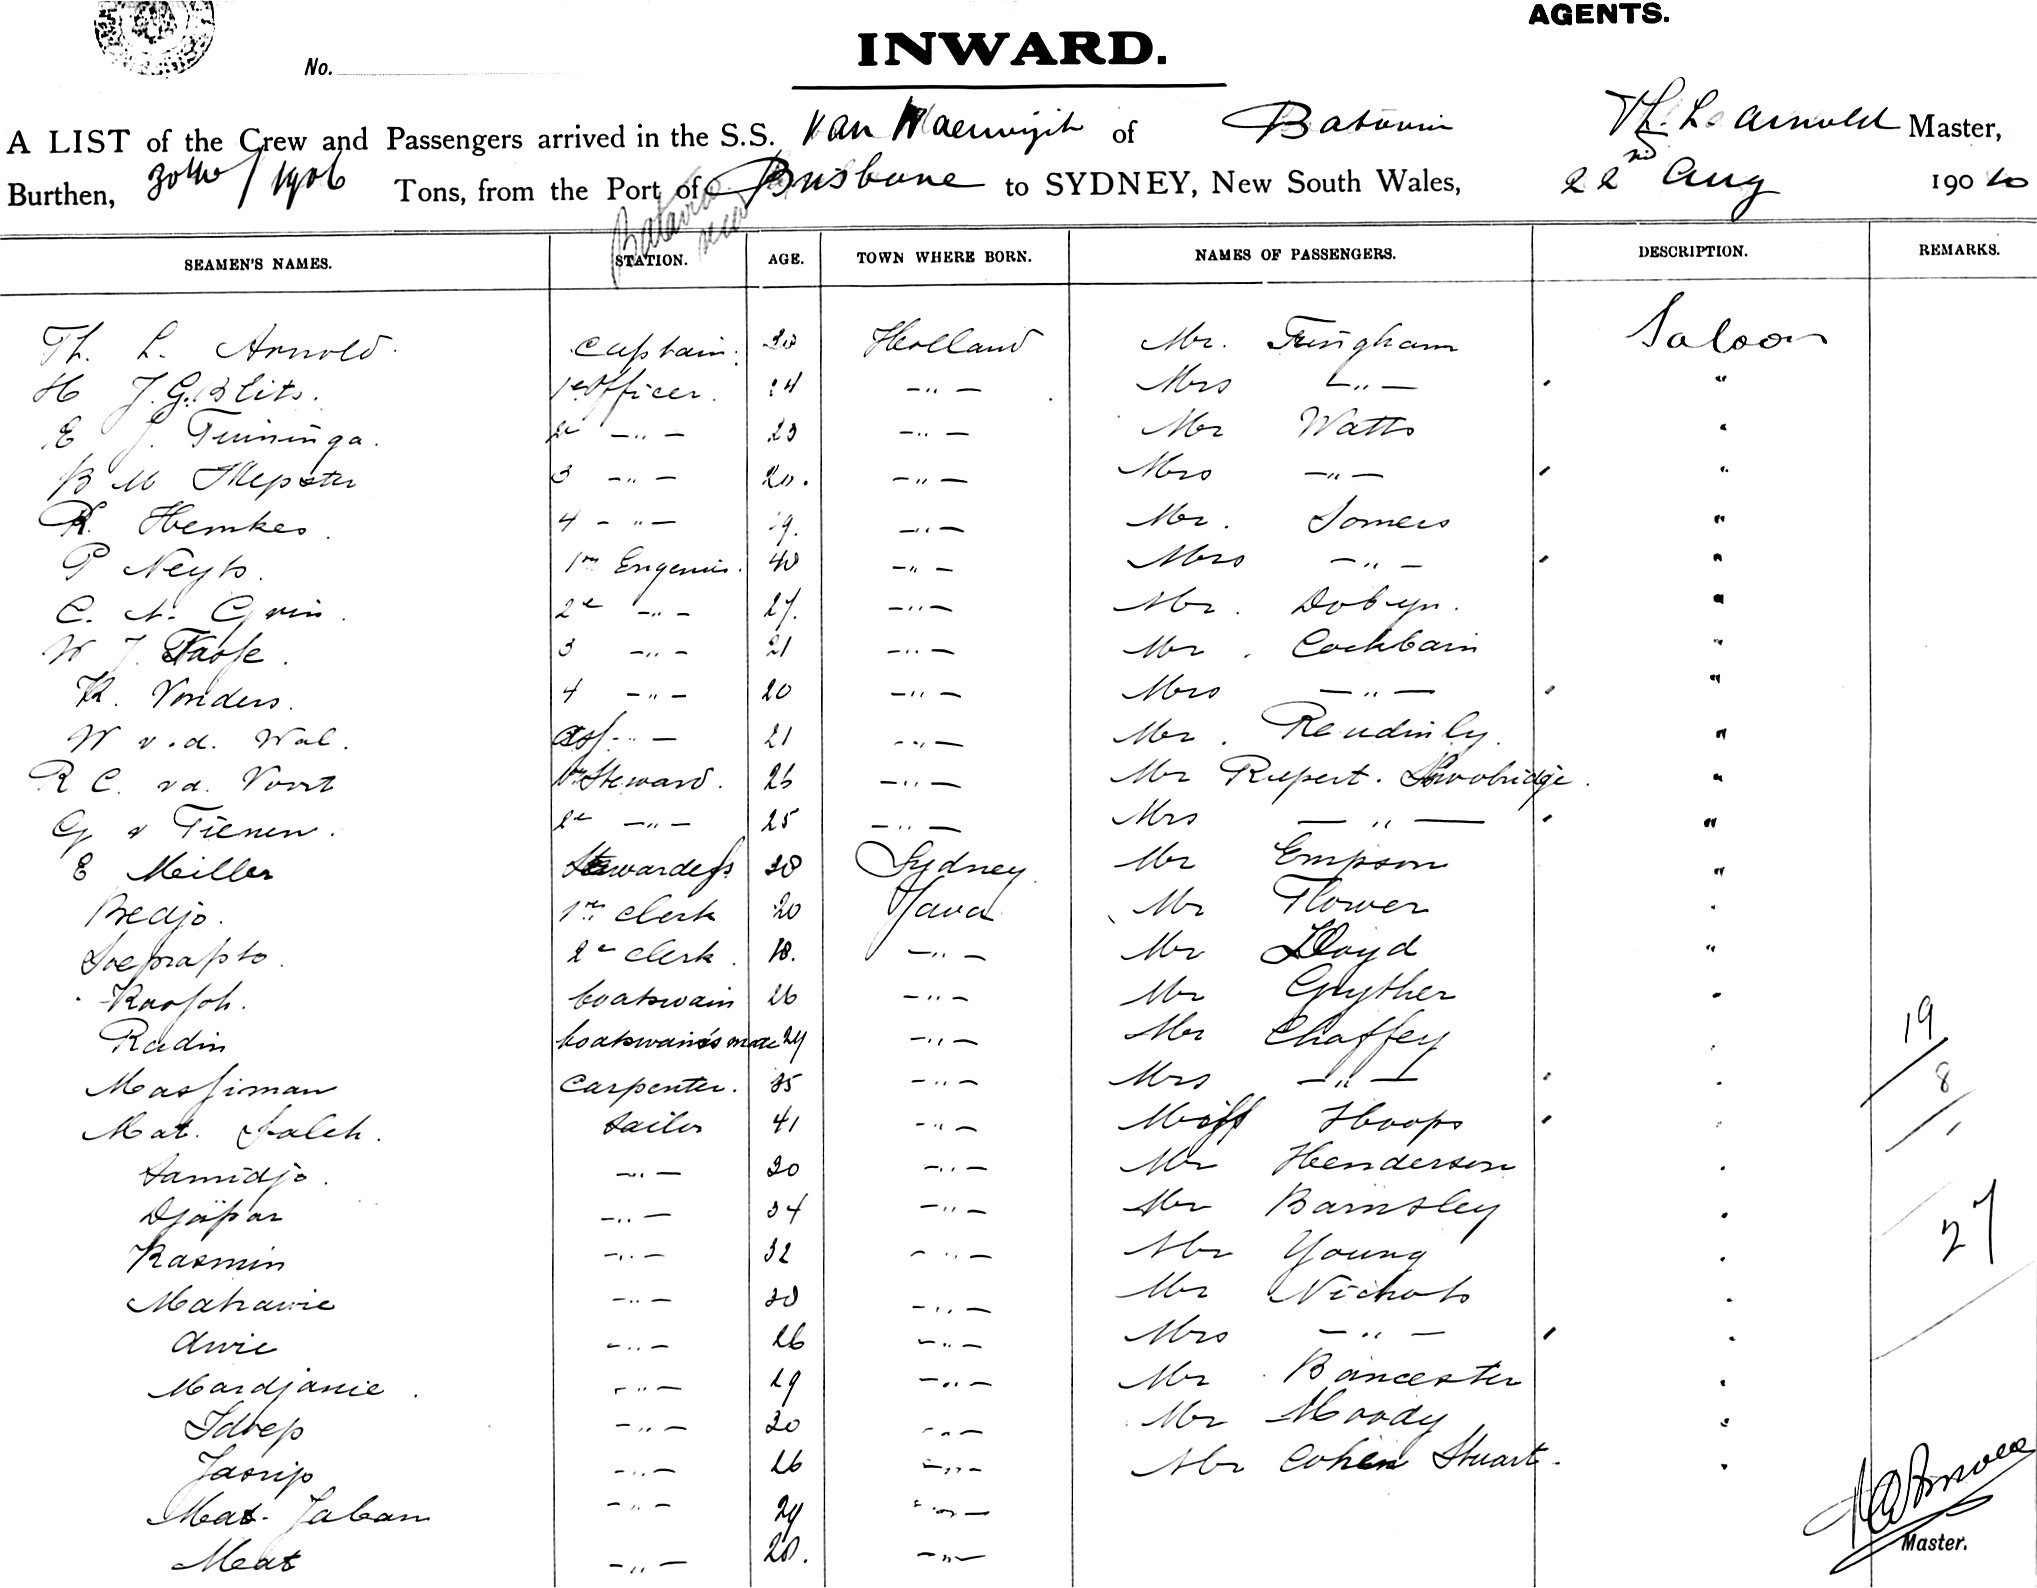 AGENTS.
INWARD.
No.
A LIST of the Crew and Passengers arrived in the S.S. Van Waerwijck of Batavia Th. L. Arnold Master,
Burthen, Tons, from the Port of Brisbane to SYDNEY, New South Wales, 22nd Aug 1910
Batavia
SEAMEN'S NAMES. STATION. AGE. TOWN WHERE BORN. NAMES OF PASSENGERS. DESCRIPTION. REMARKS.
Th. L. Arnold. Captain. Holland Mr. Fringham Saloon
H J.G. Blits. 1e Officer. 24 —"— Mrs —"— "
E J. Tuininga. 2e —"— 23 —"— Mr Watts "
B M Mepster 3 —"— 20. —"— Mrs —"— "
R. Hemkes. 4 —"— 19. —"— Mr. Somers "
P Neyts. 1m 40 —"— Mrs —"— "
C. A. 2e —"— 27. —"— Mr. Dobyn. "
W J. 3 —"— 21 —"— Mr. Cockbain "
R. Vonders. 4 —"— 20 —"— Mrs —"— "
W v.d. Wal. ass —"— 21 —"— Mr. "
R C. vd. Voort Steward. 26 —"— Mr Rupert. "
G v Tienen. 2e —"— 25 —"— Mrs —"— "
E Meiller Stewardess 38 Sydney Mr Empson "
Bedjo. 1m clerk 20 Java Mr Flower "
Soeprapto. 2e clerk. 18. —"— Mr Lloyd "
boatswain 26 —"— Mr Gryther "
Radin boatswain's mate 24 —"— Mr Chaffey "
19
Massiman Carpenter. 35 —"— Mrs —"— "
8
Mat. Saleh. sailor 41 —"— Miss Hoops "
1
Samidjo. —"— 30 —"— Mr Henderson "
Djapar —"— 34 —"— Mr Barnsley "
27
Kasmin —"— 32 —"— Mr Young "
Matrawie —"— 30 —"— Mr Nichols "
Awie —"— 26 —"— Mrs —"— "
Mardjanie. —"— 29 —"— Mr Bancester "
Idoep —"— 30 —"— Mr Moody "
Jasrip —"— 26 —"— Mr Cohen Stuart. "
Mat. Jaban —"— 29 —"—
Master.
Meat —"— 20. —"—